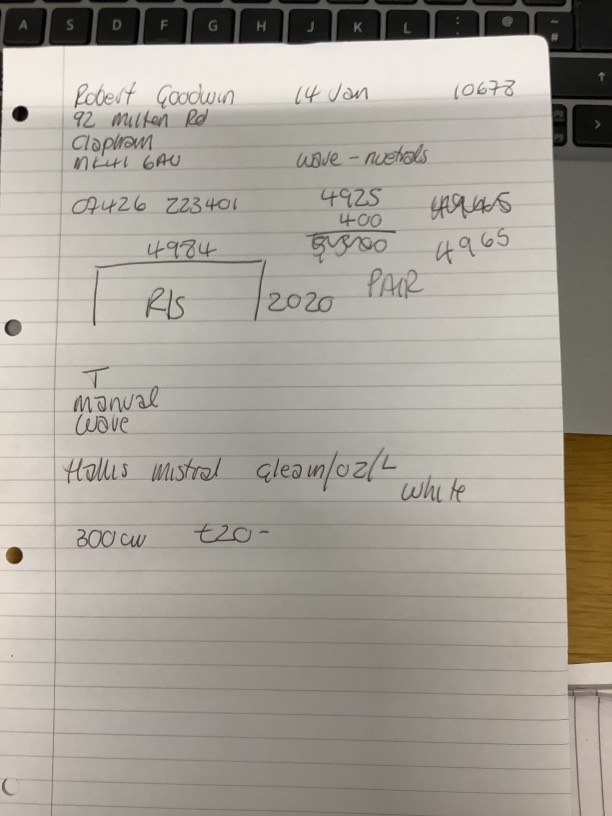 Robert Goodwin 14 Jan 10678
92 Milton Rd
Clapham
MK41 6AU wave - neutrals
07426 223401 4925
400
4984 4965
R/S 2020 PAIR
T
manual
wave
Hollis mistral Gleam/OZ/L
white
300cw t20-